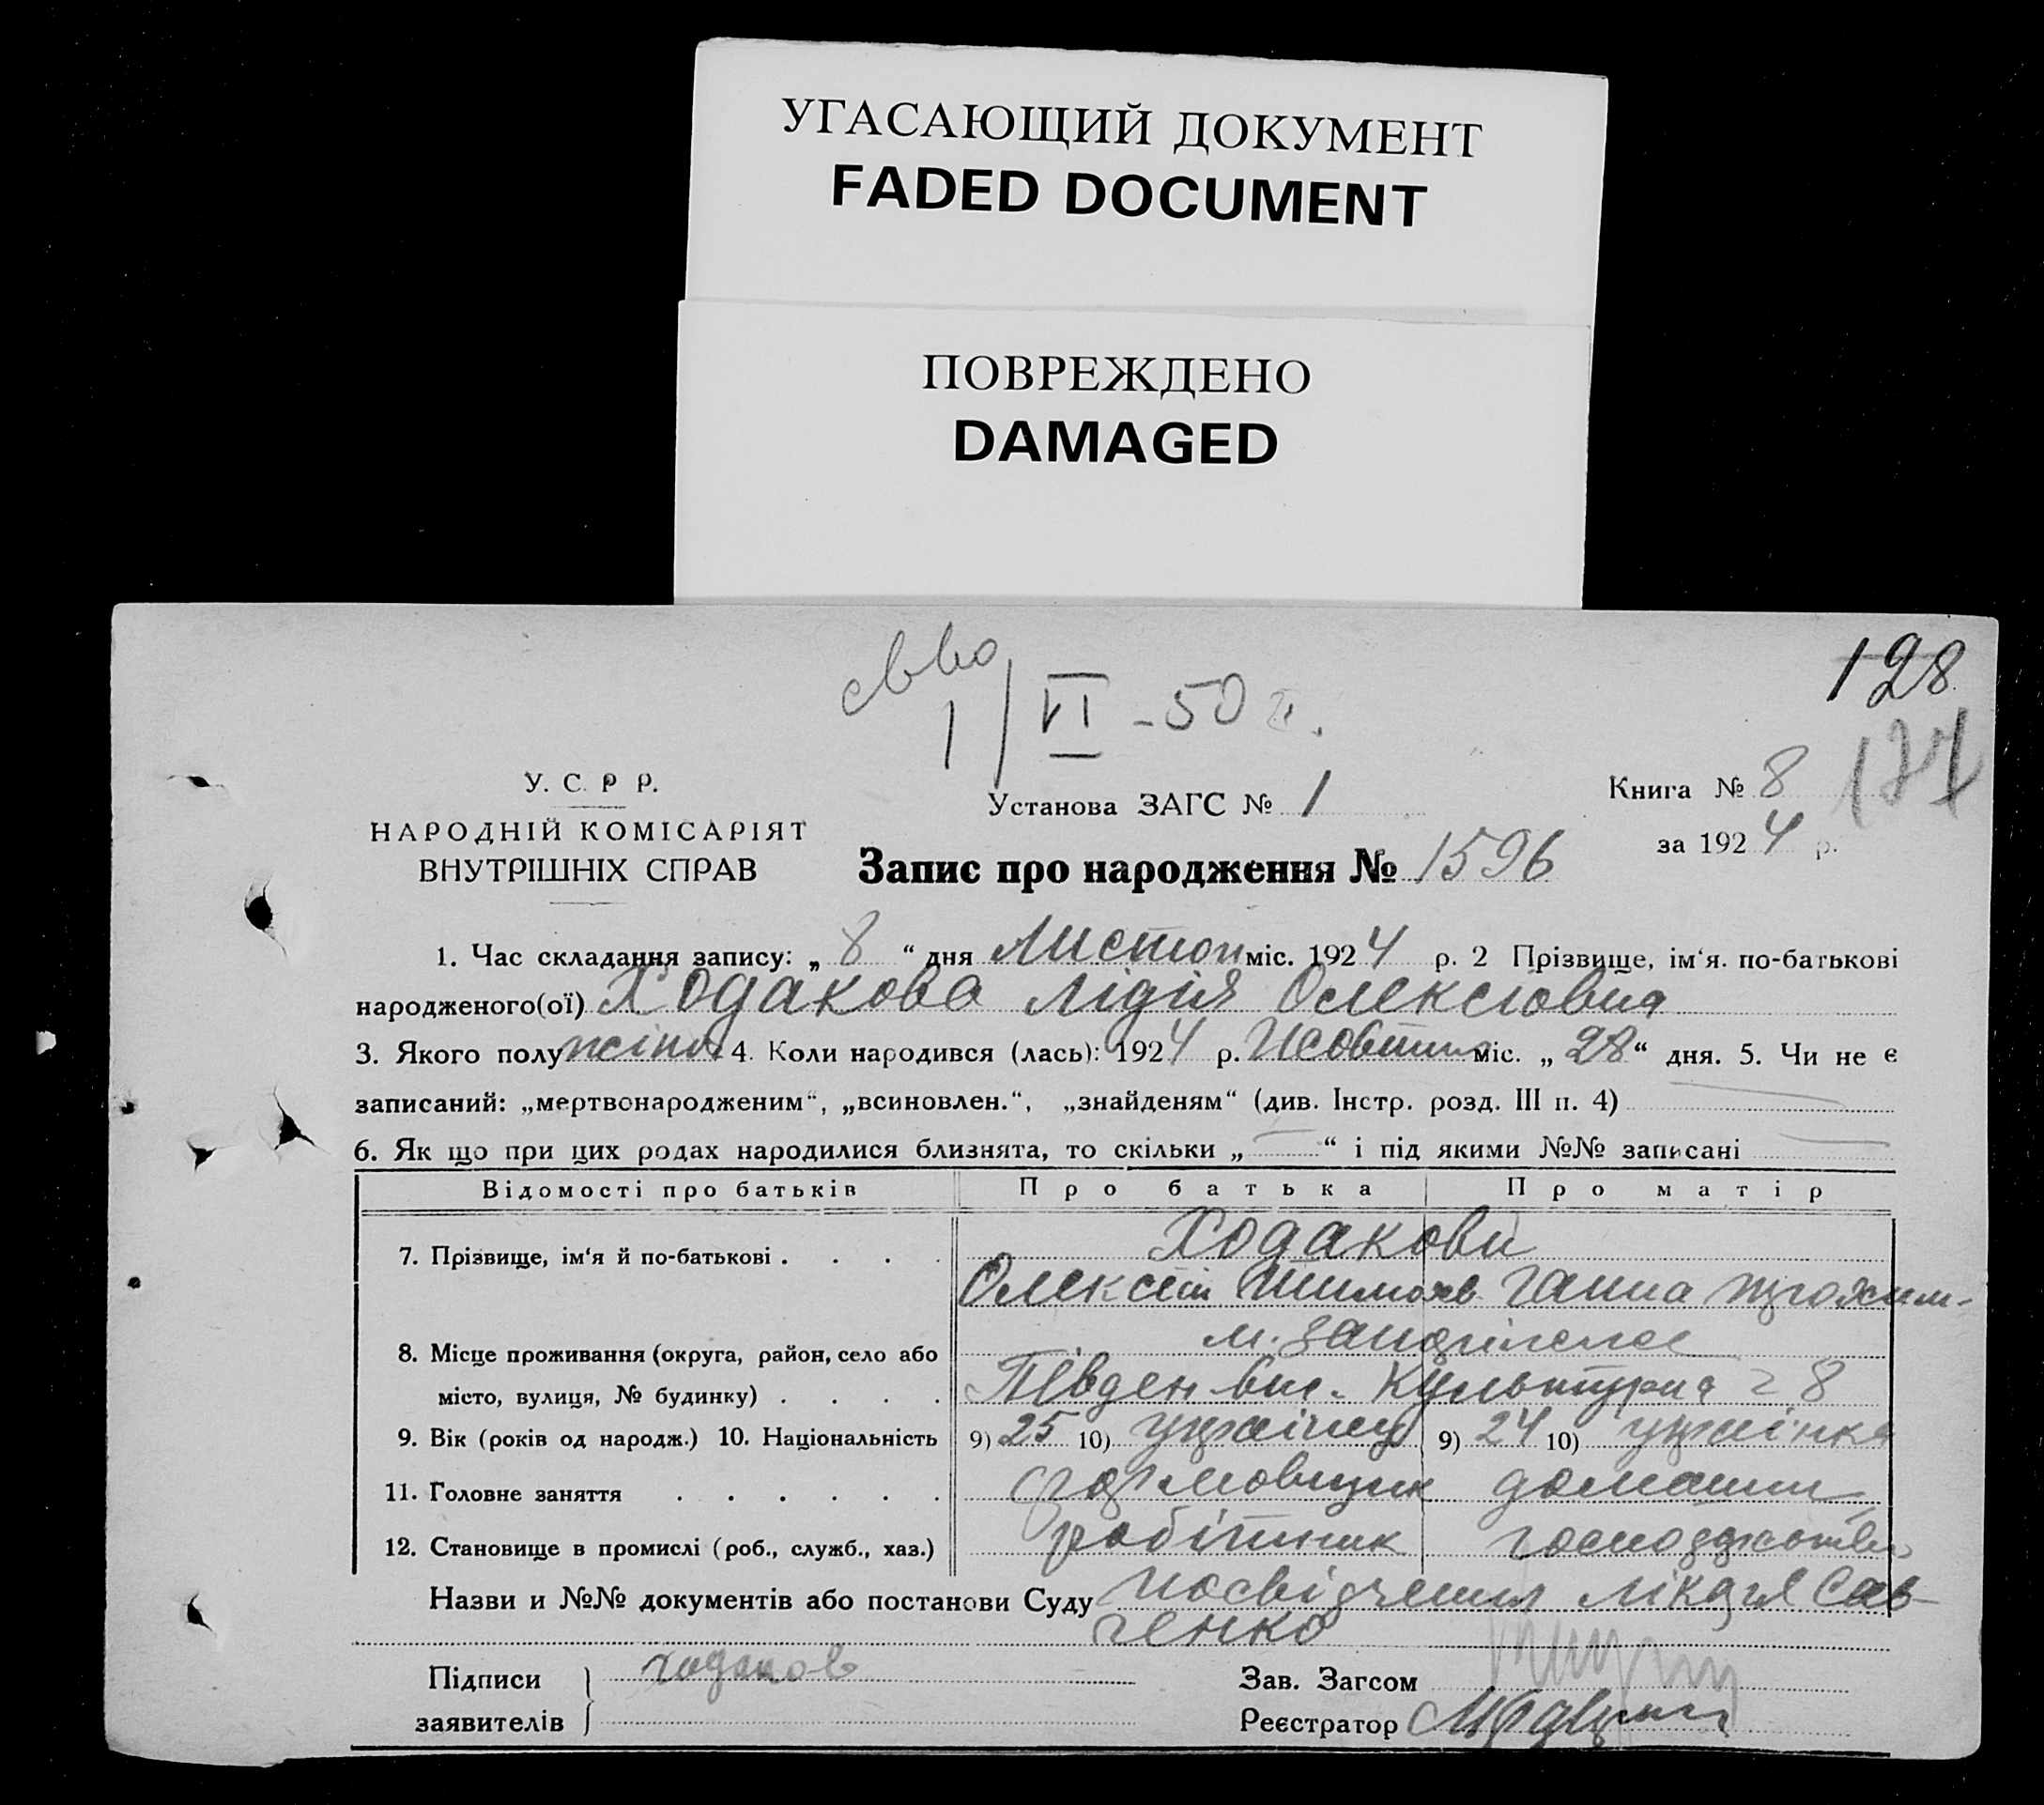 УГАСАЮЩИЙ ДОКУМЕНТ
FADED DOCUMENT
ПОВРЕЖДЕНО
DAMAGED
128
1/VI - 50 г.
У. С. Р Р.
НАРОДНІЙ КОМІСАРІЯТ
ВНУТРІШНІХ СПРАВ
Установа ЗАГС № 1
Книга № 8
за 1924 р.
Запис про народження № 1596
1. Час складання запису: „ 8 “ дня Листоп міс. 1924 р. 2 Прізвище, ім‘я. по-батькові
народженого(ої) Ходакова Лідія Олексіовна
3. Якого полу жіно 4. Коли народився (лась): 1924 р. Жовтня міс. „ 28 “ дня. 5. Чи не є
записаний: „мертвонародженим“, „всиновлен.“, „знайденям“ (див. Інстр. розд. III п. 4)
6. Як що при цих родах народилися близнята, то скільки „ — “ і під якими №№ записані —
Відомості про батьків Про батька Про матір
7. Прізвище, ім‘я й по-батькові . . . . Ходакови
Олексій Тимох Ганна
8. Місце проживання (округа, район, село або
місто, вулиця, № будинку) . . . . Південь вул. Культурна 28
9. Вік (років од народж.) 10. Національність 9) 25 10) українц 9) 24 10) українка
11. Головне заняття . . . . . . формовщик домашнє
12. Становище в промислі (роб., служб., хаз.) робітник господарство
Назви и №№ документів або постанови Суду посвідчення лікаря Сав-
ченко
Підписи ходаков Зав. Загсом
заявителів Реєстратор